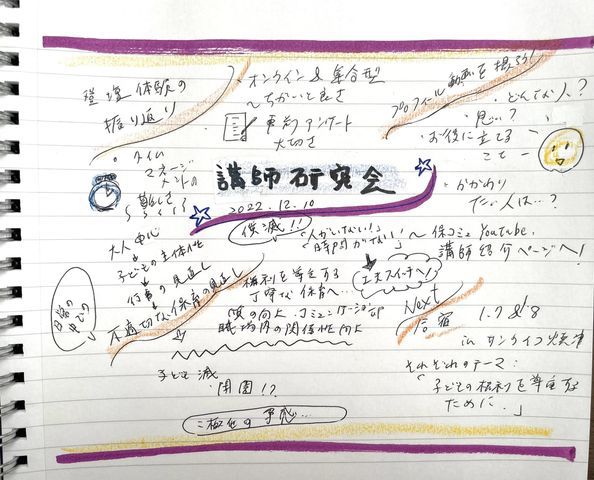 登壇体験の
振り返り
オンライン&集合型
〜ちがいと良さ
事前アンケート
大切さ
プロフィール動画を撮ろう!
・どんな人?
・思い?
・お役に立てる
こと
・かかわり
たい人は…?
・タイム
マネージ
メントの
難しさ
講師研究会
2022.12.10
大人中心
子どもの主体性
行事の見直し
不適切な保育の見直し
日常の
中での
保減!!
「人がいない!」
「時間がない!」
〜保コミュYoutube,
講師紹介ページへ!
工夫スイッチへ!
権利を尊重する
丁寧な保育へ…
質の向上、コミュニケーション
職場内の関係性向上
子ども減
閉園!?
二極化の予感…
Next
合宿
1.7&8
in サンライフ焼津
それぞれのテーマ:
「子どもの権利を尊重する
ために。」